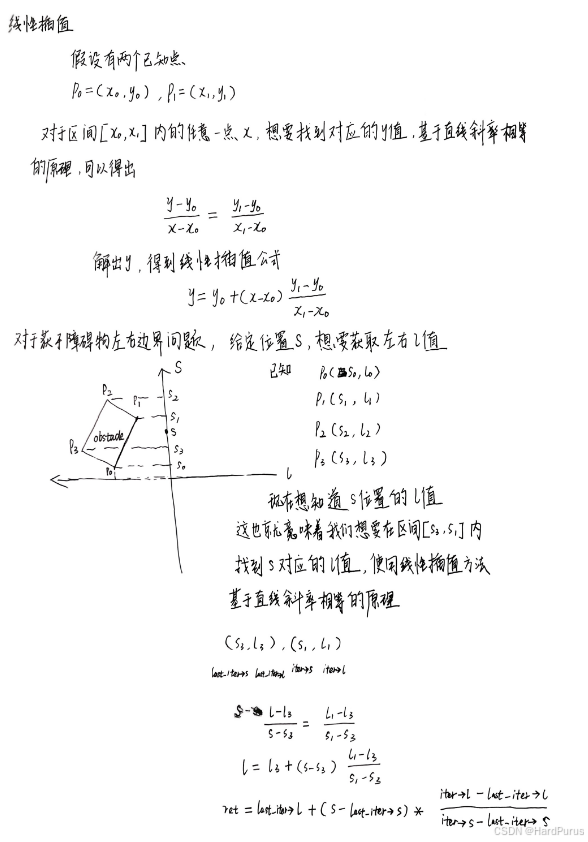 线性插值
假设有两个已知点
P₀=(x₀,y₀), P₁=(x₁,y₁)
对于区间[x₀,x₁]内的任意一点x,想要找到对应的y值,基于直线斜率相等
的原理,可以得出
(y-y₀)/(x-x₀) = (y₁-y₀)/(x₁-x₀)
解出y,得到线性插值公式
y=y₀+(x-x₀) (y₁-y₀)/(x₁-x₀)
对于获取障碍物左右边界问题,给定位置S,想要获取左右l值
S
P₂ P₁ S₂
S₁
obstacle S
P₃ S₃
P₀ S₀
l
已知 P₀(S₀,l₀)
P₁(S₁,l₁)
P₂(S₂,l₂)
P₃(S₃,l₃)
现在想知道S位置的l值
这也就意味着我们想要在区间[S₃,S₁]内
找到S对应的l值,使用线性插值方法
基于直线斜率相等的原理
(S₃,l₃),(S₁,l₁)
last_iter→s last_iter→l iter→s iter→l
(l-l₃)/(s-s₃) = (l₁-l₃)/(s₁-s₃)
l = l₃+(s-s₃) (l₁-l₃)/(s₁-s₃)
ret = last_iter→l + (s-last_iter→s) * (iter→l - last_iter→l)/(iter→s - last_iter→s)
CSDN @HardPurus